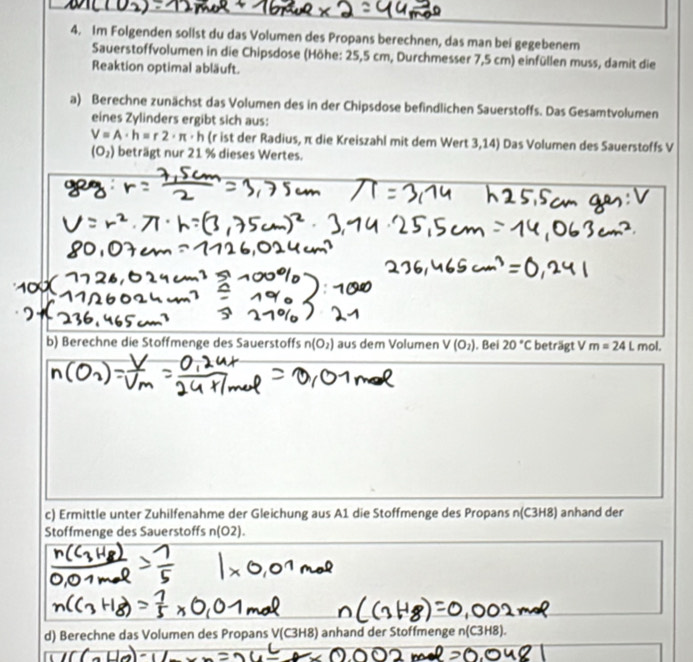 M(CO₂)=12 + 16 × 2 = 44
4. Im Folgenden sollst du das Volumen des Propans berechnen, das man bei gegebenem
Sauerstoffvolumen in die Chipsdose (Höhe: 25,5 cm, Durchmesser 7,5 cm) einfüllen muss, damit die
Reaktion optimal abläuft.
a) Berechne zunächst das Volumen des in der Chipsdose befindlichen Sauerstoffs. Das Gesamtvolumen
eines Zylinders ergibt sich aus:
V = A · h = r 2 · π · h (r ist der Radius, π die Kreiszahl mit dem Wert 3,14) Das Volumen des Sauerstoffs V
(O₂) beträgt nur 21 % dieses Wertes.
geg: r = 7,5cm/2 = 3,75cm π = 3,14 h 25,5cm ges: V
V = r² · π · h = (3,75cm)² · 3,14 · 25,5cm = 14,063cm² ·
80,07cm = 1126,024cm³
236,465cm³ = 0,24 l
:100 ( 1126,024cm³ ≙ 100% ) : 100
( 1126024cm³ ≙ 1%
· 21 ( 236,465cm³ ≙ 21% ) · 21
b) Berechne die Stoffmenge des Sauerstoffs n(O₂) aus dem Volumen V (O₂). Bei 20 °C beträgt V m = 24 L mol.
n(O₂) = V/Vm = 0,24 l / 24 l/mol = 0,01 mol
c) Ermittle unter Zuhilfenahme der Gleichung aus A1 die Stoffmenge des Propans n(C3H8) anhand der
Stoffmenge des Sauerstoffs n(O2).
n(C₃H₈)/0,01mol = 1/5 | × 0,01 mol
n(C₃H8) = 1/5 × 0,01mol n(C3H8) = 0,002mol
d) Berechne das Volumen des Propans V(C3H8) anhand der Stoffmenge n(C3H8).
0,002 mol = 0,048 l